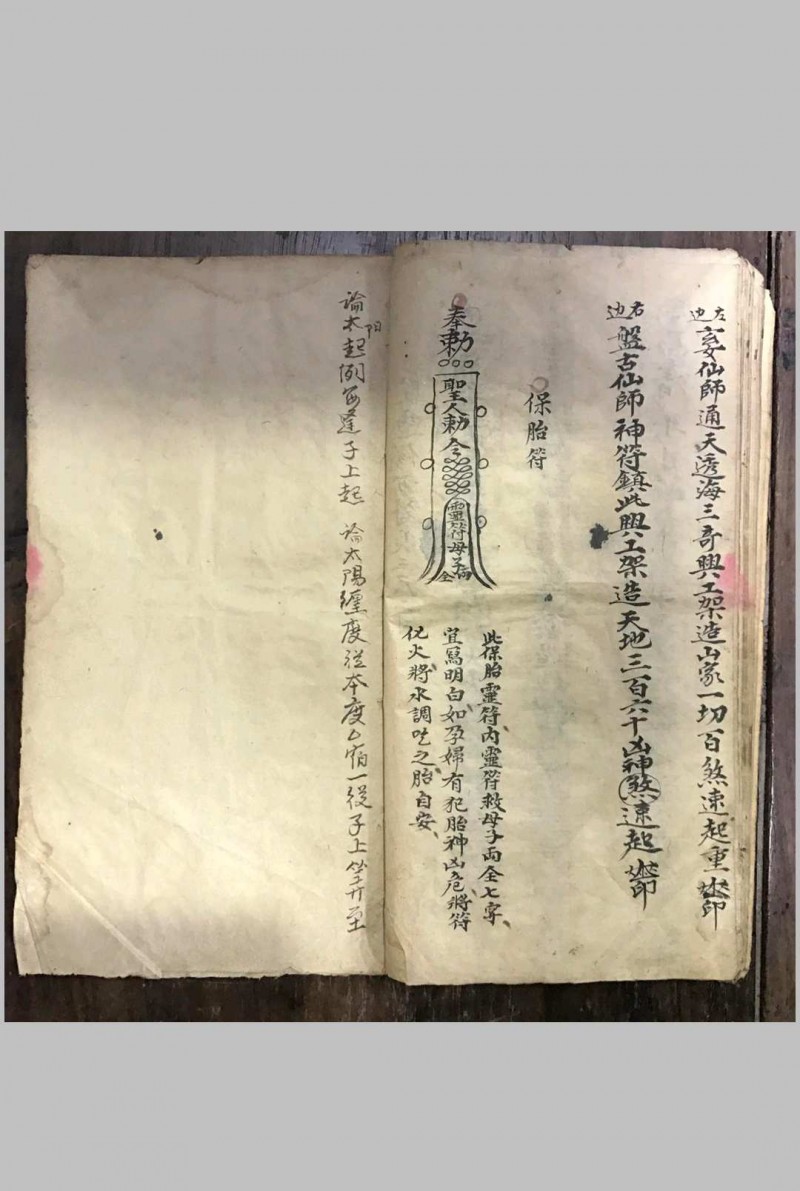 左边
仙師通天透海三奇興工架造山家一切百煞速起重印
右边
盤古仙師神符鎮此興工架造天地三百六十凶神煞速起印
保胎符
奉勅
聖人勅令
靈符母子兩全
此保胎靈符内靈符救母子兩全七字、
宜寫明白、如孕婦有犯胎神凶危、將符
化火將水調吃之、胎自安、
論太阳起例每逢子上起 論太陽纏度從本度宿一從子上